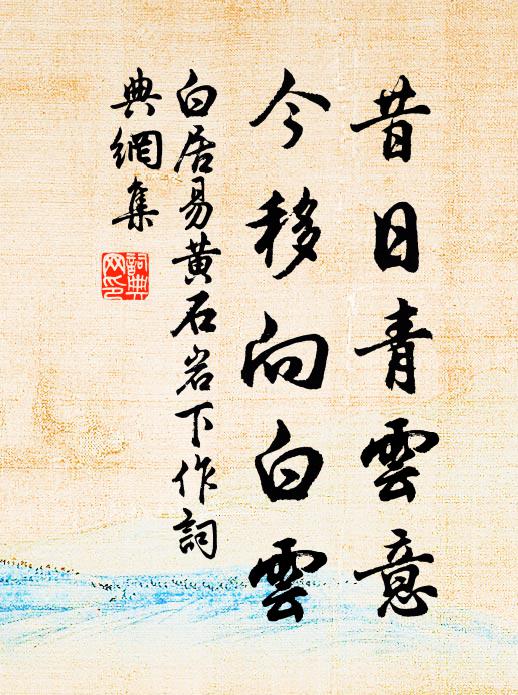 昔日青雲意
今移向白雲
白居易黄石岩下作詞
典網集
詞典網印